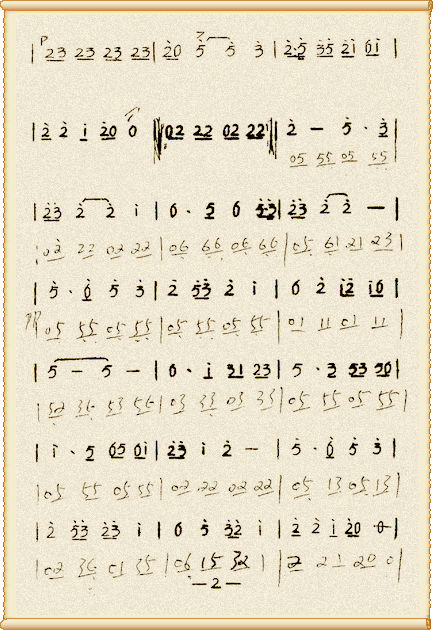 | p 23 23 23 23 | 20 5 5 3 | 2·5 35 21 01 |
| 2 2 1 20 0 ‖ 02 22 02 22 ‖ 2 — 5 · 3 |
05 55 05 55
| 23 2 2 1 | 0 · 5 0 53 | 23 2 2 — |
| 02 22 02 22 | 06 66 06 66 | 05 61 21 23 |
| 5 · 0 5 3 | 2 53 2 1 | 0 2 12 10 |
05 55 05 55 | 05 55 05 55 | 01 11 01 11 |
| 5 — 5 — | 0 · 1 31 23 | 5 · 3 53 30 |
| 52 36 53 56 | 03 33 03 33 | 05 55 05 55 |
| 1 · 5 05 01 | 23 1 2 — | 5 · 0 5 3 |
| 05 55 05 55 | 02 22 02 22 | 05 13 05 13 |
| 2 53 23 1 | 0 5 32 1 | 2 2 1 20 0 |
| 02 36 01 35 | 06 15 32 | 2 21 20 0 |
— 2 —